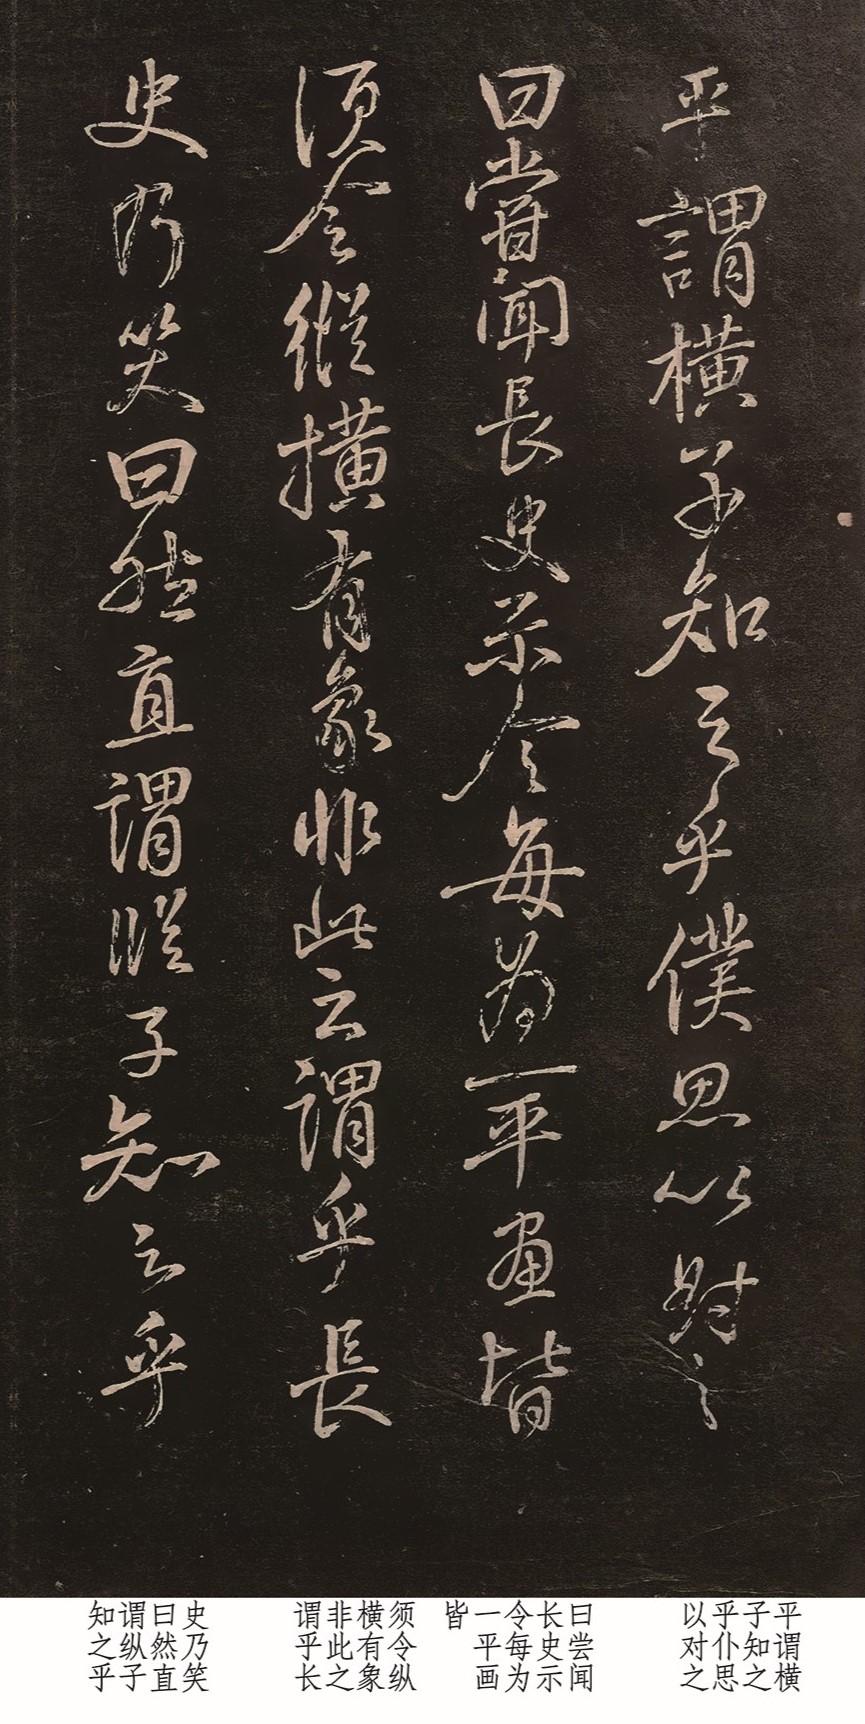 平謂橫子知之乎僕思以對之
曰嘗聞長史示令每為一平畫皆
須令縱橫有象非此之謂乎長
史乃笑曰然直謂縱子知之乎
平谓横
子知之
乎仆思
以对之
曰尝闻
长史示
令每为
一平画
皆
须令纵
横有象
非此之
谓乎长
史乃笑
曰然直
谓纵子
知之乎